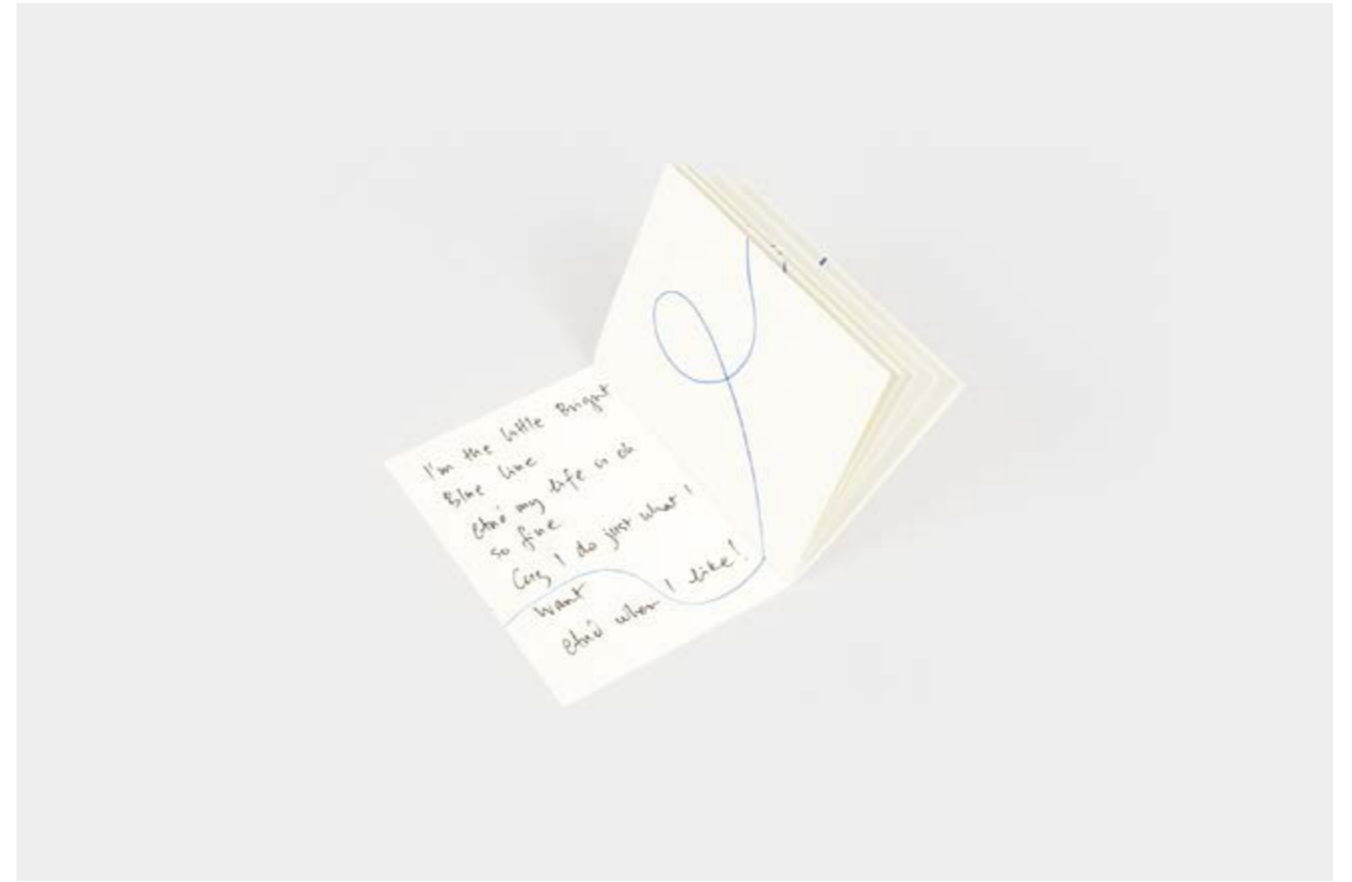 I'm the little Bright
Blue line
And my life is oh
so fine
Cuz I do just what I
want
And when I like!